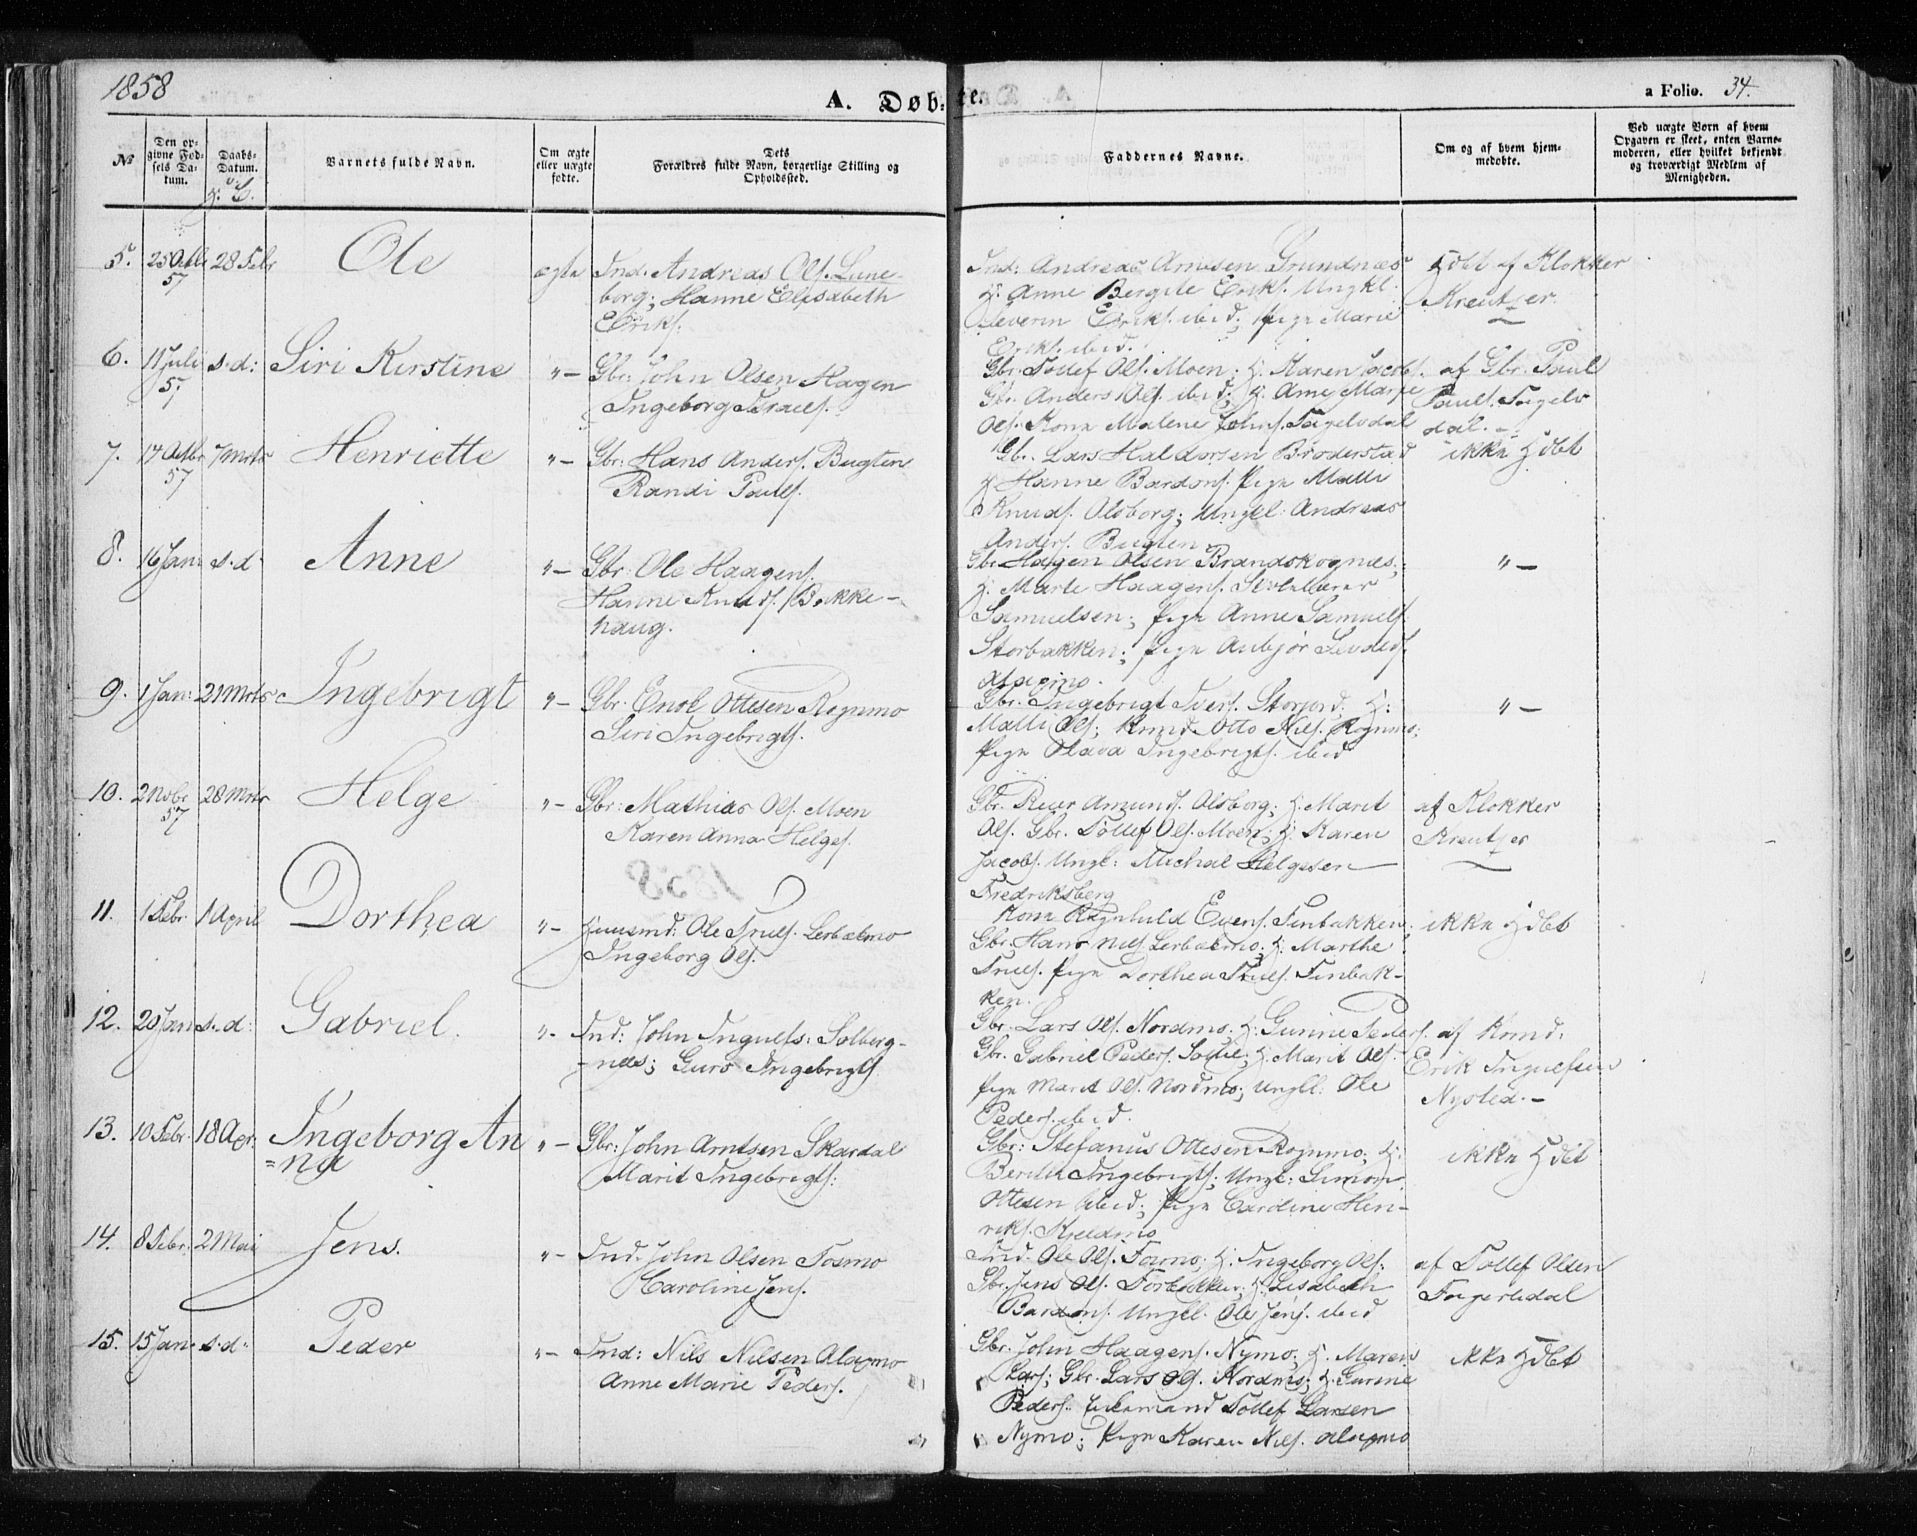 1858
A. Døb-te.
a Folio. 34.
No
Den opgivne Fødsels Datum.
Daabs-Datum.
Barnets fulde Navn.
Om ægte eller uægte fødte.
Dets Forældres fulde Navn, borgerlige Stilling og Opholdssted.
Faddernes Navne.
Om og af hvem hjemmedøbte.
Ved uægte Børn af hvem Opgaven er skeet, enten Barnemoderen, eller hvilket bekjendt og troværdigt Medlem af Menigheden.
5. 57 28 Febr Ole ægte
Ind: Andreas Ols. Lune-
borg; Hanne Elisabeth
Eriks.
Ind: Andreas Arnesen Grundnæs
H: Anne Bergite Eriks. Ungkl.
Severin Eriks. ibid; Pign Marie
Eriks. ibid.
Hdbt af Klokker
Kreutzer
6. 11 Juli 57 s.d: Siri Kirstine "-
Gbr: John Olsen Hagen
Ingeborg Israels.
Gbr: Tollef Ols. Moen; H. Karen Jacobs.
Gbr. Anders Ols. ibid; H. Ane Marie
Ols. Kone Malene Johns. Fagelvdal
af Gbr. Paul
Pauls. Fagelv
dal.-
7. 17 Octbr 57 7 Mrts Henriette "-
Gbr: Hans Anders. Bugten
Randi Pauls.
Gbr. Lars Haldorsen Brøderstad
H Hanne Bardons. Pign Malli
Knuds. Olsborg; Ungkl: Andreas
Anders. Bugten
ikke Hdbt
8. 16 Jan: s.d. Anne "-
Gbr: Ole Haagens.
Hanne Knuds. Bakke-
haug.
Gbr Hagen Olsen Brandskognæs;
H. Marte Haagens. Skolelærer
Samuelsen; Pign Anne Samuels.
Storbakken; Pign Anbjør
"-
9. 1 Jan: 21 Mrts Ingebrigt "-
Gbr. Enok Ottesen Rognmo
Siri Ingebrigts.
Gbr. Ingebrigt Ivers. Storjord; H:
Malli Ols; Komd. Otto Nils. Rognmo;
Pign Olava Ingebrigts. ibid
"-
10. 2 Novbr 57 28 Mrts Helge "-
Gbr: Mathias Ols. Moen
Karen Anna Helges.
Gbr. Reier Amunds. Olsborg; H. Marit
Ols. Gbr. Tollef Ols. Moen; H. Karen
Jacobs. Ungl: Michal Helgesen
Fredriksberg
af Klokker
Kreutzer
11. 1 Febr. 1 April Dorthea "-
Huusmd: Ole Truls. Lerbakmo
Ingeborg Ols.
Kone Ragnhild Evens. Finbakken;
Gbr. Hans Nils Lerbakmo; H. Marthe
Truls. Pign Dorthea Truls. Finbak-
ken.
ikke Hdbt
12. 20 Jan s.d: Gabriel. "-
Ind: John Ingulfs: Solberg-
-næs; Guro Ingebrigts
Gbr. Lars Ols. Nordmo; H: Gurine Peders.
Gbr. Gabriel Peders. H. Marit Ols.
Pign Marit Ols. Nordmo; Ungkl: Ole
Peders. ibid.
af Komd:
Erik Ingulfsen
Nysted.-
13. 10 Febr. 18 Apr. Ingeborg An
=na "-
Gbr: John Arntsen Skardal
Marit Ingebrigts:
Gbr: Stefanus Ottesen Rognmo; H:
Berith Ingebrigts; Ungl: Simon
Ottesen ibid; Pign Caroline Hen-
riks. Kjeldmo
ikke Hdbt
14. 8 Febr. 2 Mai Jens. "-
Ind: John Olsen Fosmo
Caroline Jens.
Ind. Ole Ols. Fosmo; H: Ingeborg Ols:
Gbr. Jens Ols. H: Lisabeth
Bardons. Ungkl. Ole Jens. ibid
af Tollef Olsen
Fagerlidal
15. 15 Jan. s.d. Peder "-
Ind: Nils Nilsen Alapmo
Anne Marie Peders.
Gbr. John Haagens. Nymo; H. Maren
Lars; Gbr. Lars Ols. Nordmo; H. Gurine
Peders. Tollef Larsen
Nymo; Pign Karen Nils. Alapmo
ikke Hdbt